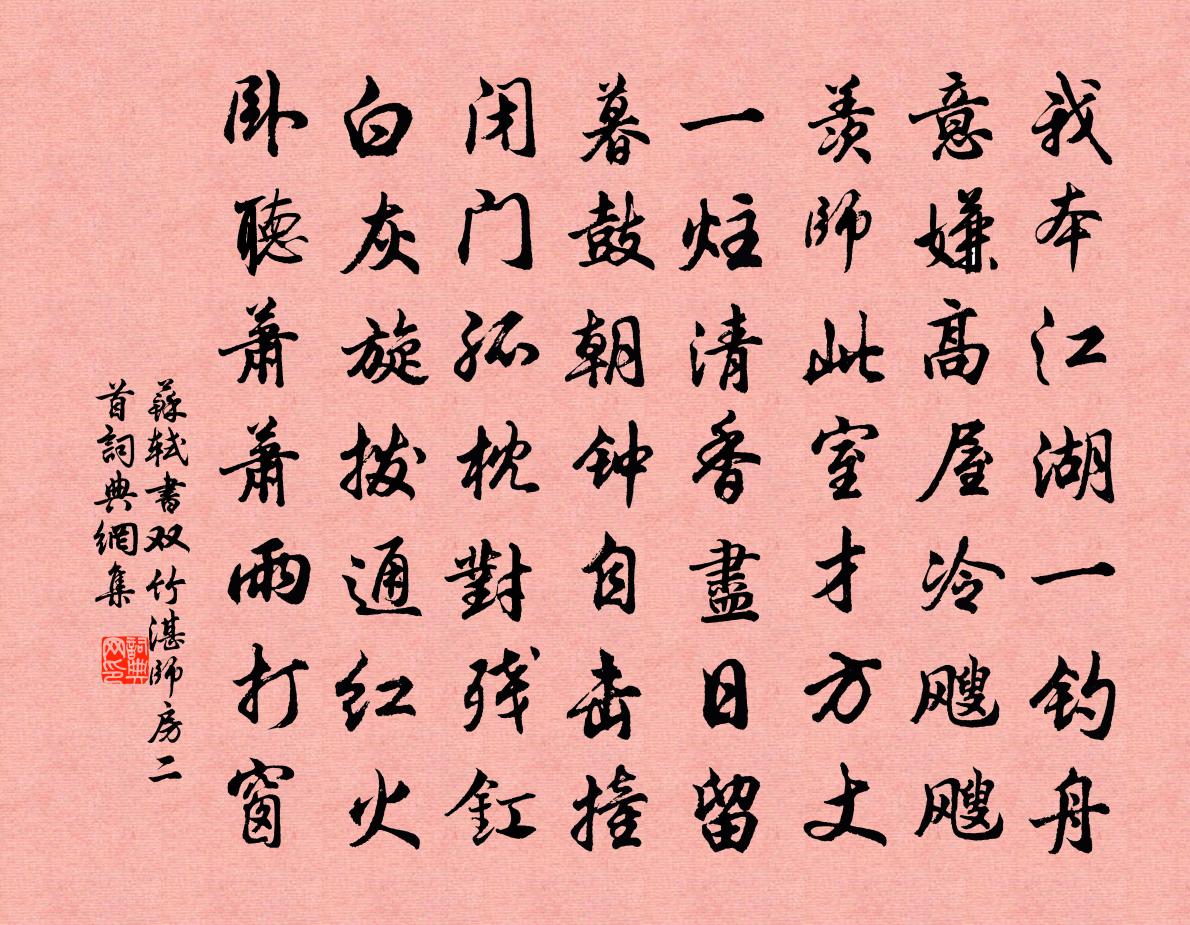 我本江湖一钓舟
意嫌髙屋冷飕飕
羨師此室才方丈
一炷清香盡日留
暮鼓朝钟自击撞
闭门孤枕對残釭
白灰旋拨通红火
卧聽萧萧雨打窗
蘇轼書双竹湛師房二
首詞典網集
詞典
网印